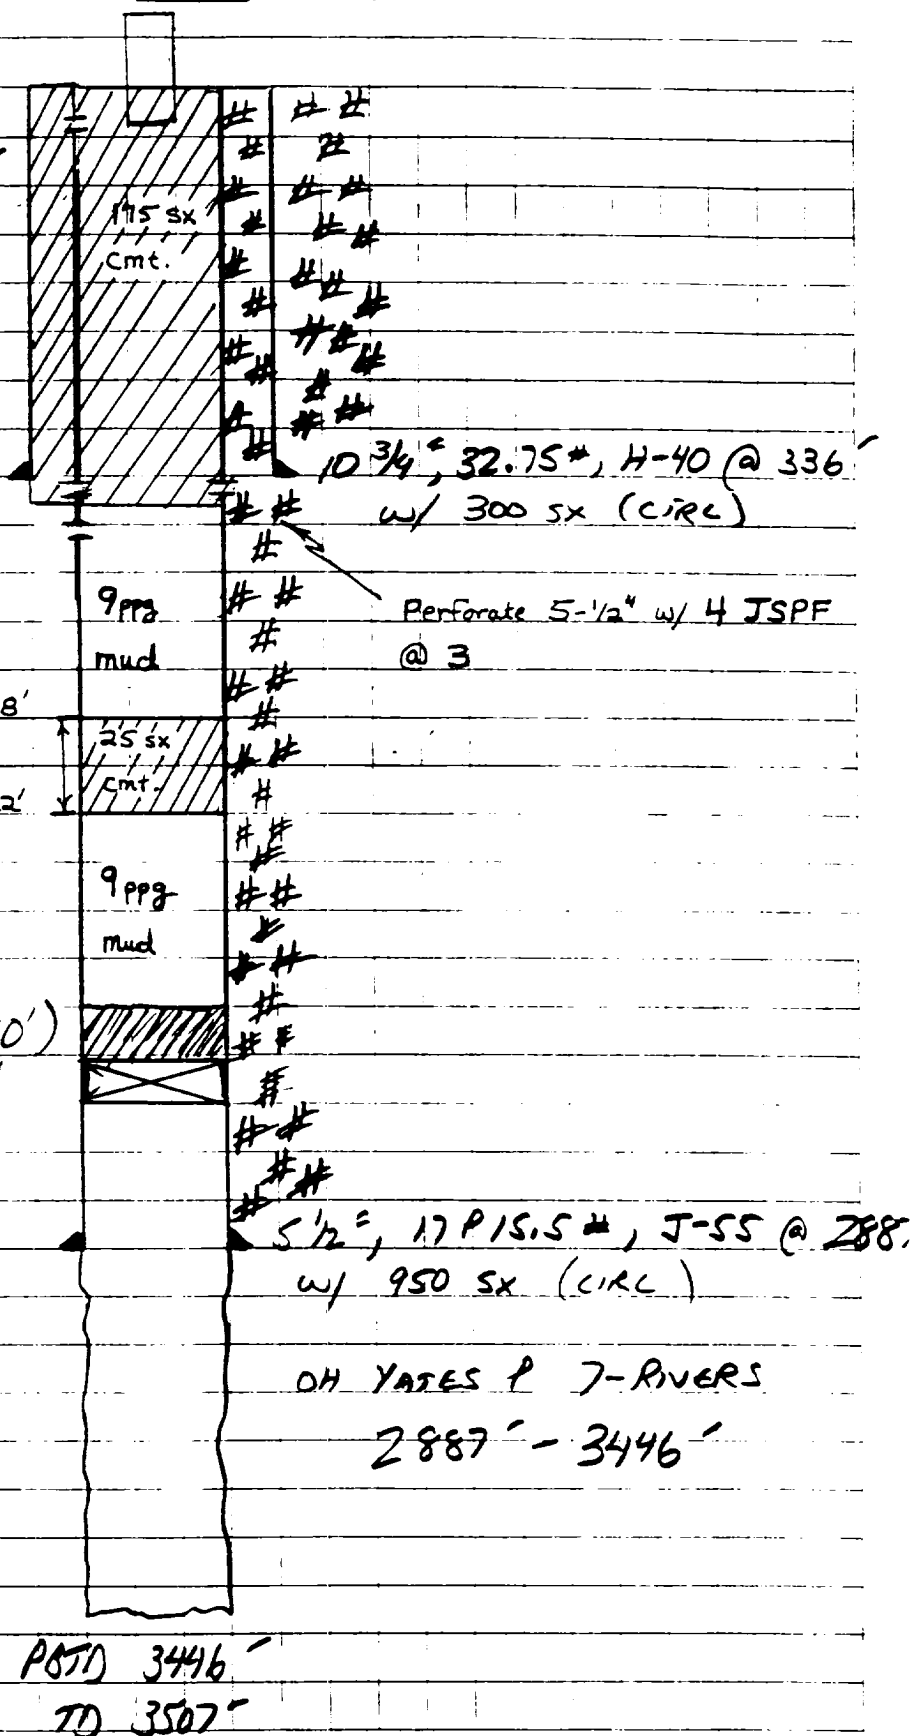 175 sx
cmt.
10 3/4", 32.75#, H-40 @ 336'
w/ 300 sx (CIRC)
9 ppg
mud
Perforate 5-1/2" w/ 4 JSPF
@ 3
8'
25 sx
cmt.
2'
9 ppg
mud
0')
5 1/2", 17 & 15.5#, J-55 @ 288
w/ 950 sx (CIRC)
OH YATES & 7-RIVERS
2887' - 3446'
PBTD 3446'
TD 3507'